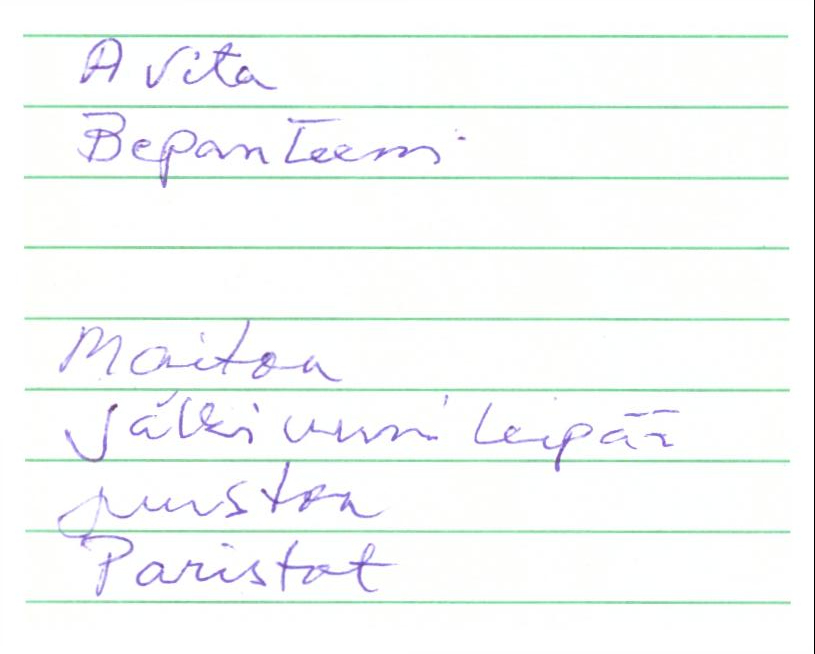 A vita
Bepanteeni
Maitoa
Jälkiuuni leipää
juustoa
Paristot